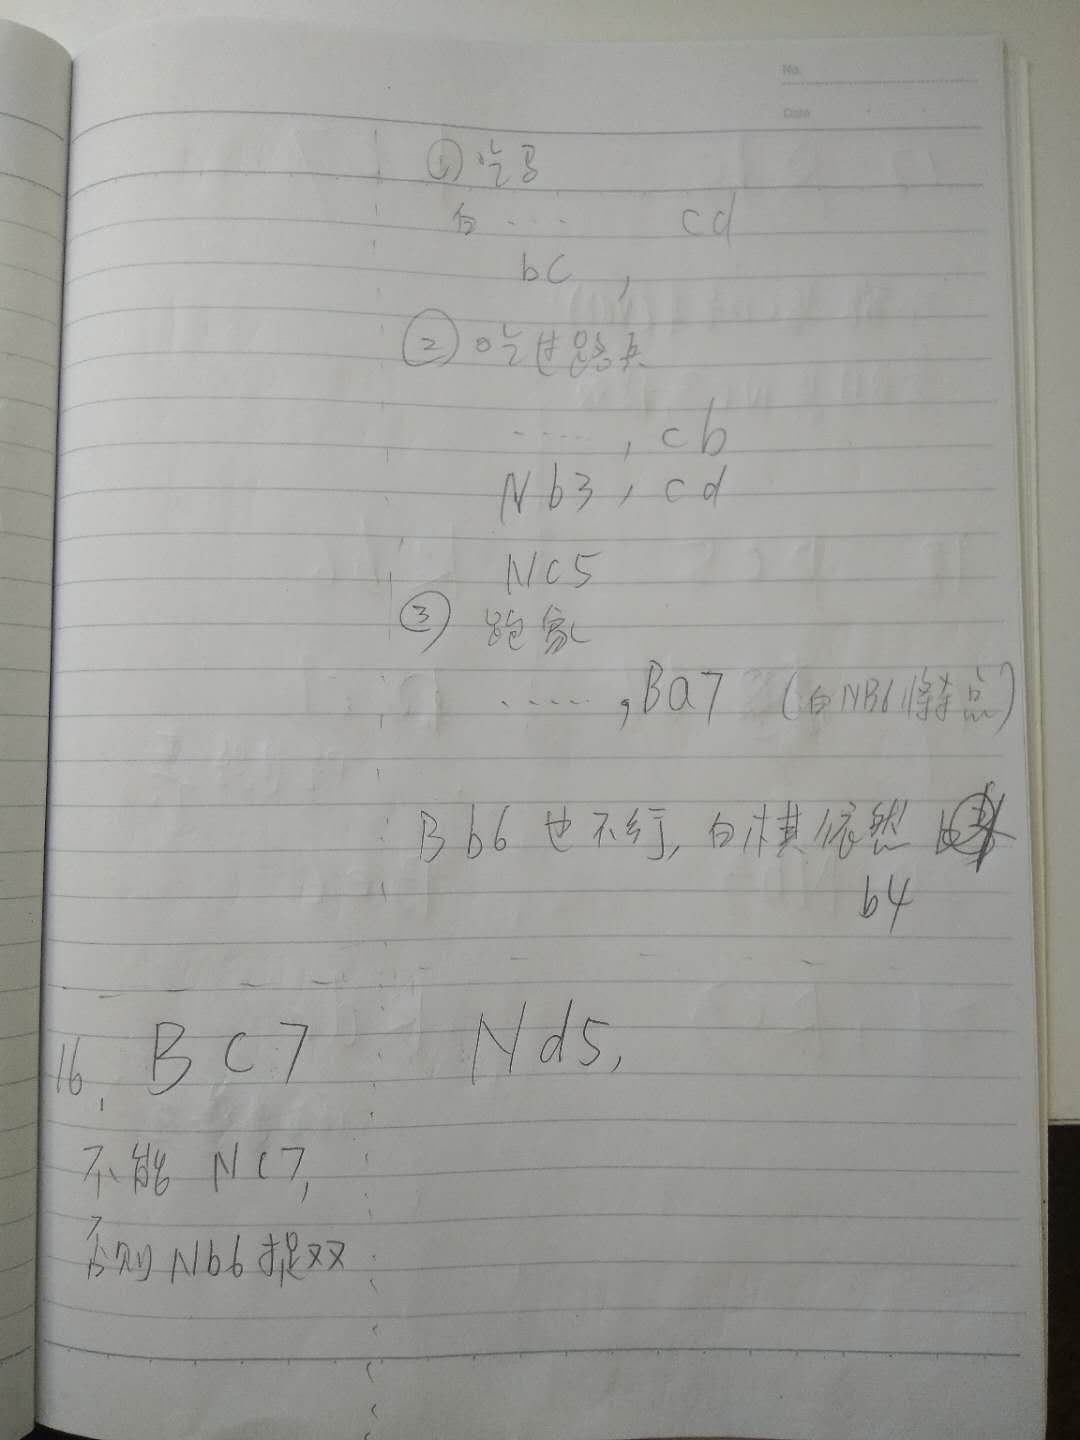 No.
Date
① 吃马
白 ···· cd
bc ,
② 吃过路兵
·····, cb
Nb3, cd
Nc5
③ 跑象
·····, Ba7 (白NB6将等点)
Bb6 也不行, 白棋依然
b4
16. BC7 Nd5,
不能 NC7,
否则 Nb6 捉双